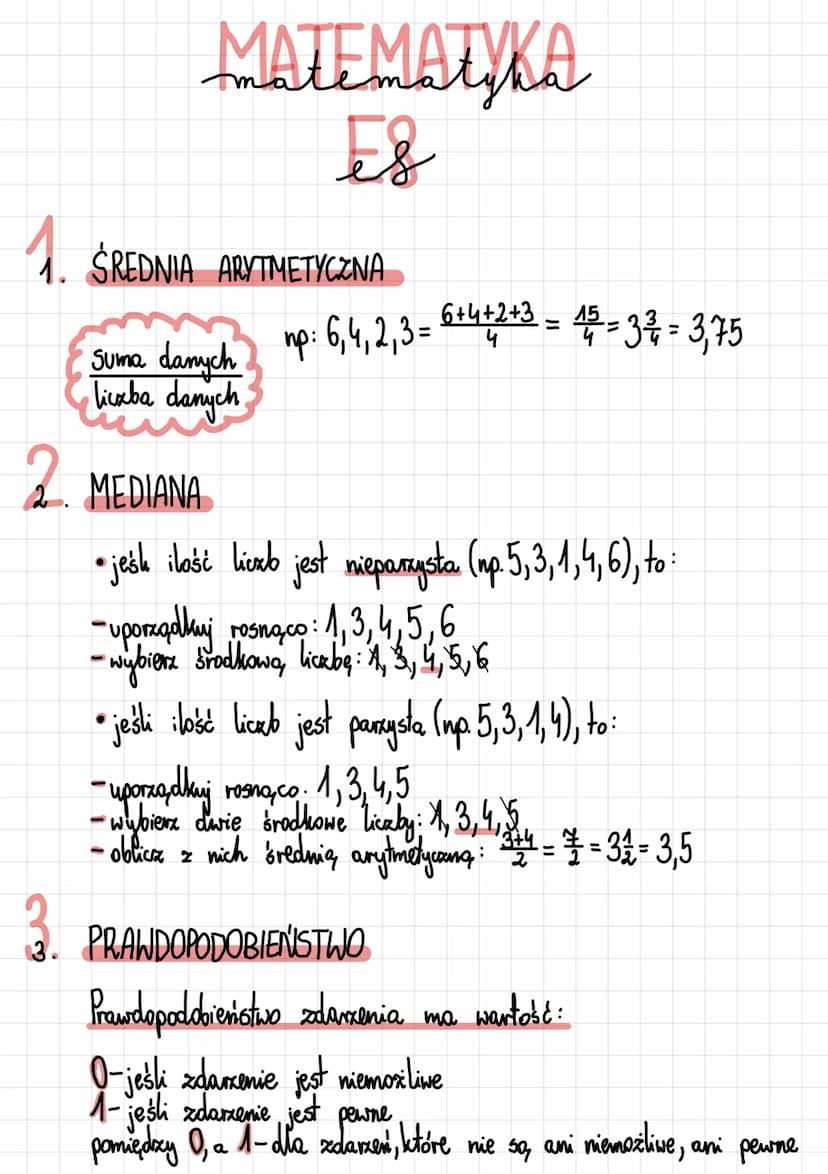 MATEMATYKA
matematyka
E8
e8
1. ŚREDNIA ARYTMETYCZNA
suma danych
liczba danych
np: 6,4,2,3 = 6+4+2+3/4 = 15/4 = 3 3/4 = 3,75
2. MEDIANA
• jeśli ilość liczb jest nieparzysta (np. 5,3,1,4,6), to:
- uporządkuj rosnąco: 1,3,4,5,6
- wybierz środkową liczbę: 1,3,4,5,6
• jeśli ilość liczb jest parzysta (np. 5,3,1,4), to:
- uporządkuj rosnąco. 1,3,4,5
- wybierz dwie środkowe liczby: 1,3,4,5
- oblicz z nich średnią arytmetyczną: 3+4/2 = 7/2 = 3 1/2 = 3,5
3. PRAWDOPODOBIEŃSTWO
Prawdopoddobieństwo zdarzenia ma wartość:
0 - jeśli zdarzenie jest niemożliwe
1 - jeśli zdarzenie jest pewne
pomiędzy 0, a 1 - dla zdarzeń, które nie są ani niemożliwe, ani pewne